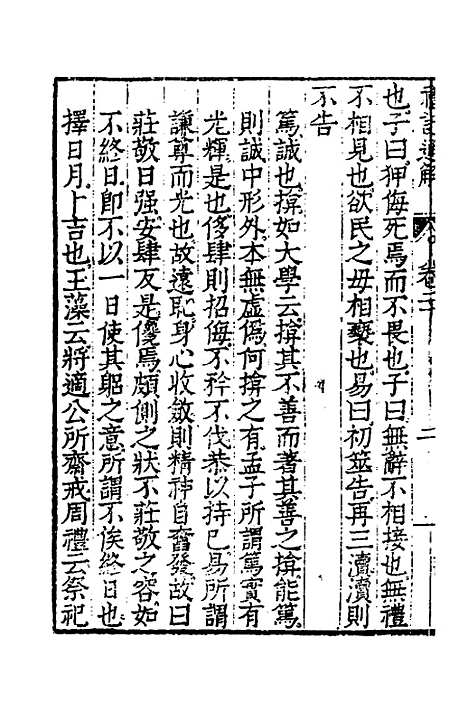 禮記通解 卷二十 二
也子曰狎侮死焉而不畏也子曰無辭不相接也無禮
不相見也欲民之毋相褻也易曰初筮告再三瀆瀆則
不告
篤誠也揜如大學云揜其不善而著其善之揜能篤
則誠中形外本無虛僞何揜之有孟子所謂篤實有
光輝是也侈肆則招侮不矜不伐恭以持已易所謂
謙尊而光也故遠恥身心收斂則精神自奮發故曰
莊敬日强安肆反是儳焉頗側之狀不莊敬之容如
不終日卽不以一日使其軀之意所謂不俟終日也
擇日月卜吉也玉藻云將適公所齋戒周禮云祭祀